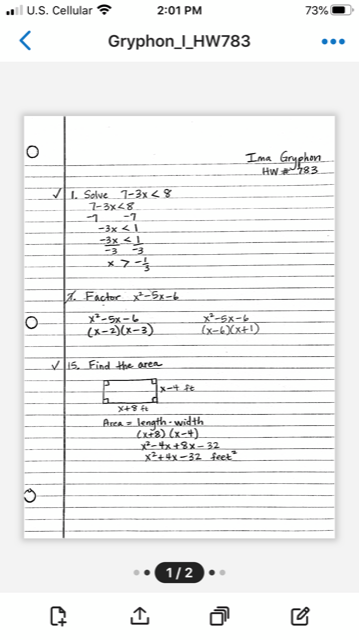 U.S. Cellular 2:01 PM 73%
Gryphon_I_HW783
Ima Gryphon
HW # 783
✓ 1. Solve 7-3x < 8
7-3x<8
-7 -7
-3x < 1
-3x < 1
-3 -3
x > -1/3
7. Factor x²-5x-6
x²-5x-6 x²-5x-6
(x-2)(x-3) (x-6)(x+1)
✓ 15. Find the area
x-4 ft
x+8 ft
Area = length · width
(x+8)(x-4)
x²-4x+8x-32
x²+4x-32 feet²
1/2